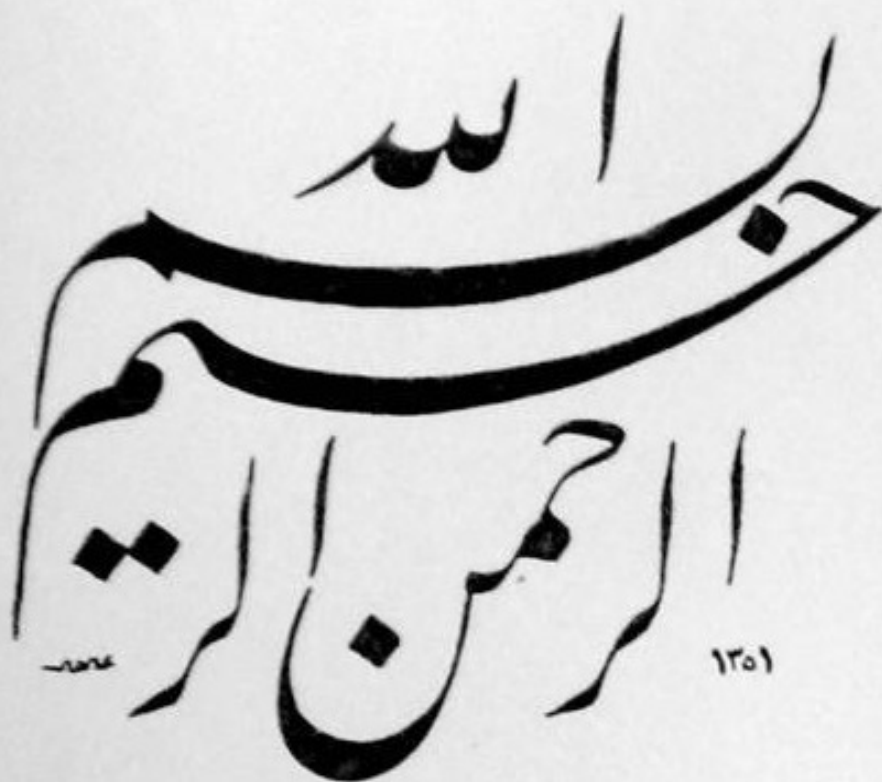 بسم الله
الرحمن الرحيم
١٣٥١